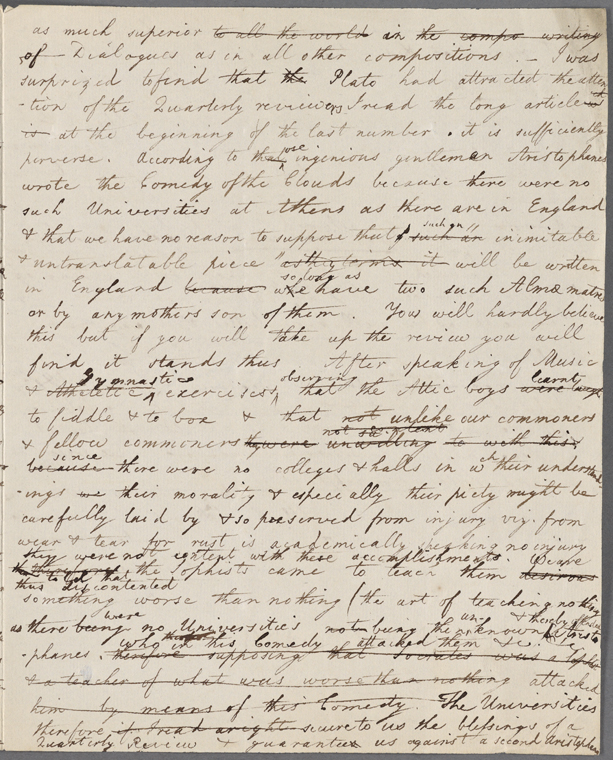 as much superior to all the world in the compo writing
of Dialogues as in all other compositions. — I was
surprized to find that the Plato had attracted the atten
-tion of the Quarterly reviewers I read the long article
is at the beginning of the last number. it is sufficiently
perverse. According to that ingenious gentleman Aristophenes
wrote the Comedy of the Clouds because there were no
such Universities at Athens as there are in England
such an
& that we have no reason to suppose that such an inimitable
& untranslatable piece "as they termz it will be written
so long as
in England because we have two such Almæ matres
or by any mothers son of them. You will hardly believe
this but if you will take up the review you will
find it stands thus After speaking of Music
Gymnastic observing learnt
& Athletic exercises that the Attic boys were
to fiddle & to box & that not unlike our commoners
not so content
& fellow commoners they were unwilling to with this
since
because there were no colleges & halls in wch their understand
-ings we their morality & especially their piety might be
carefully laid by & so preserved from injury viz. from
wear & tear for rust is academically speaking no injury
they were not content with these accomplishments. We are
to that
therefore, the sophists came to teach them desirous
thus discontented
something worse than nothing (the art of teaching nothing
were un
as there being no Universities not being then known Aristo
who in his Comedy attacked them &c.
-phanes. therefore supposing that Socrates was a Sophist
& a teacher of what was worse than nothing attacked
him by means of this Comedy. The Universities
therefore if I read aright secure to us the blessings of a
Quarterly Review & guarantee us against a second Aristophanes